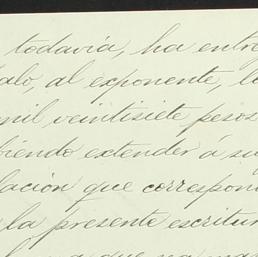 todavía, ha entre
alo, al exponente, l
mil veintisiete pesos
biendo extender á su
lación que correspon
la presente escritur